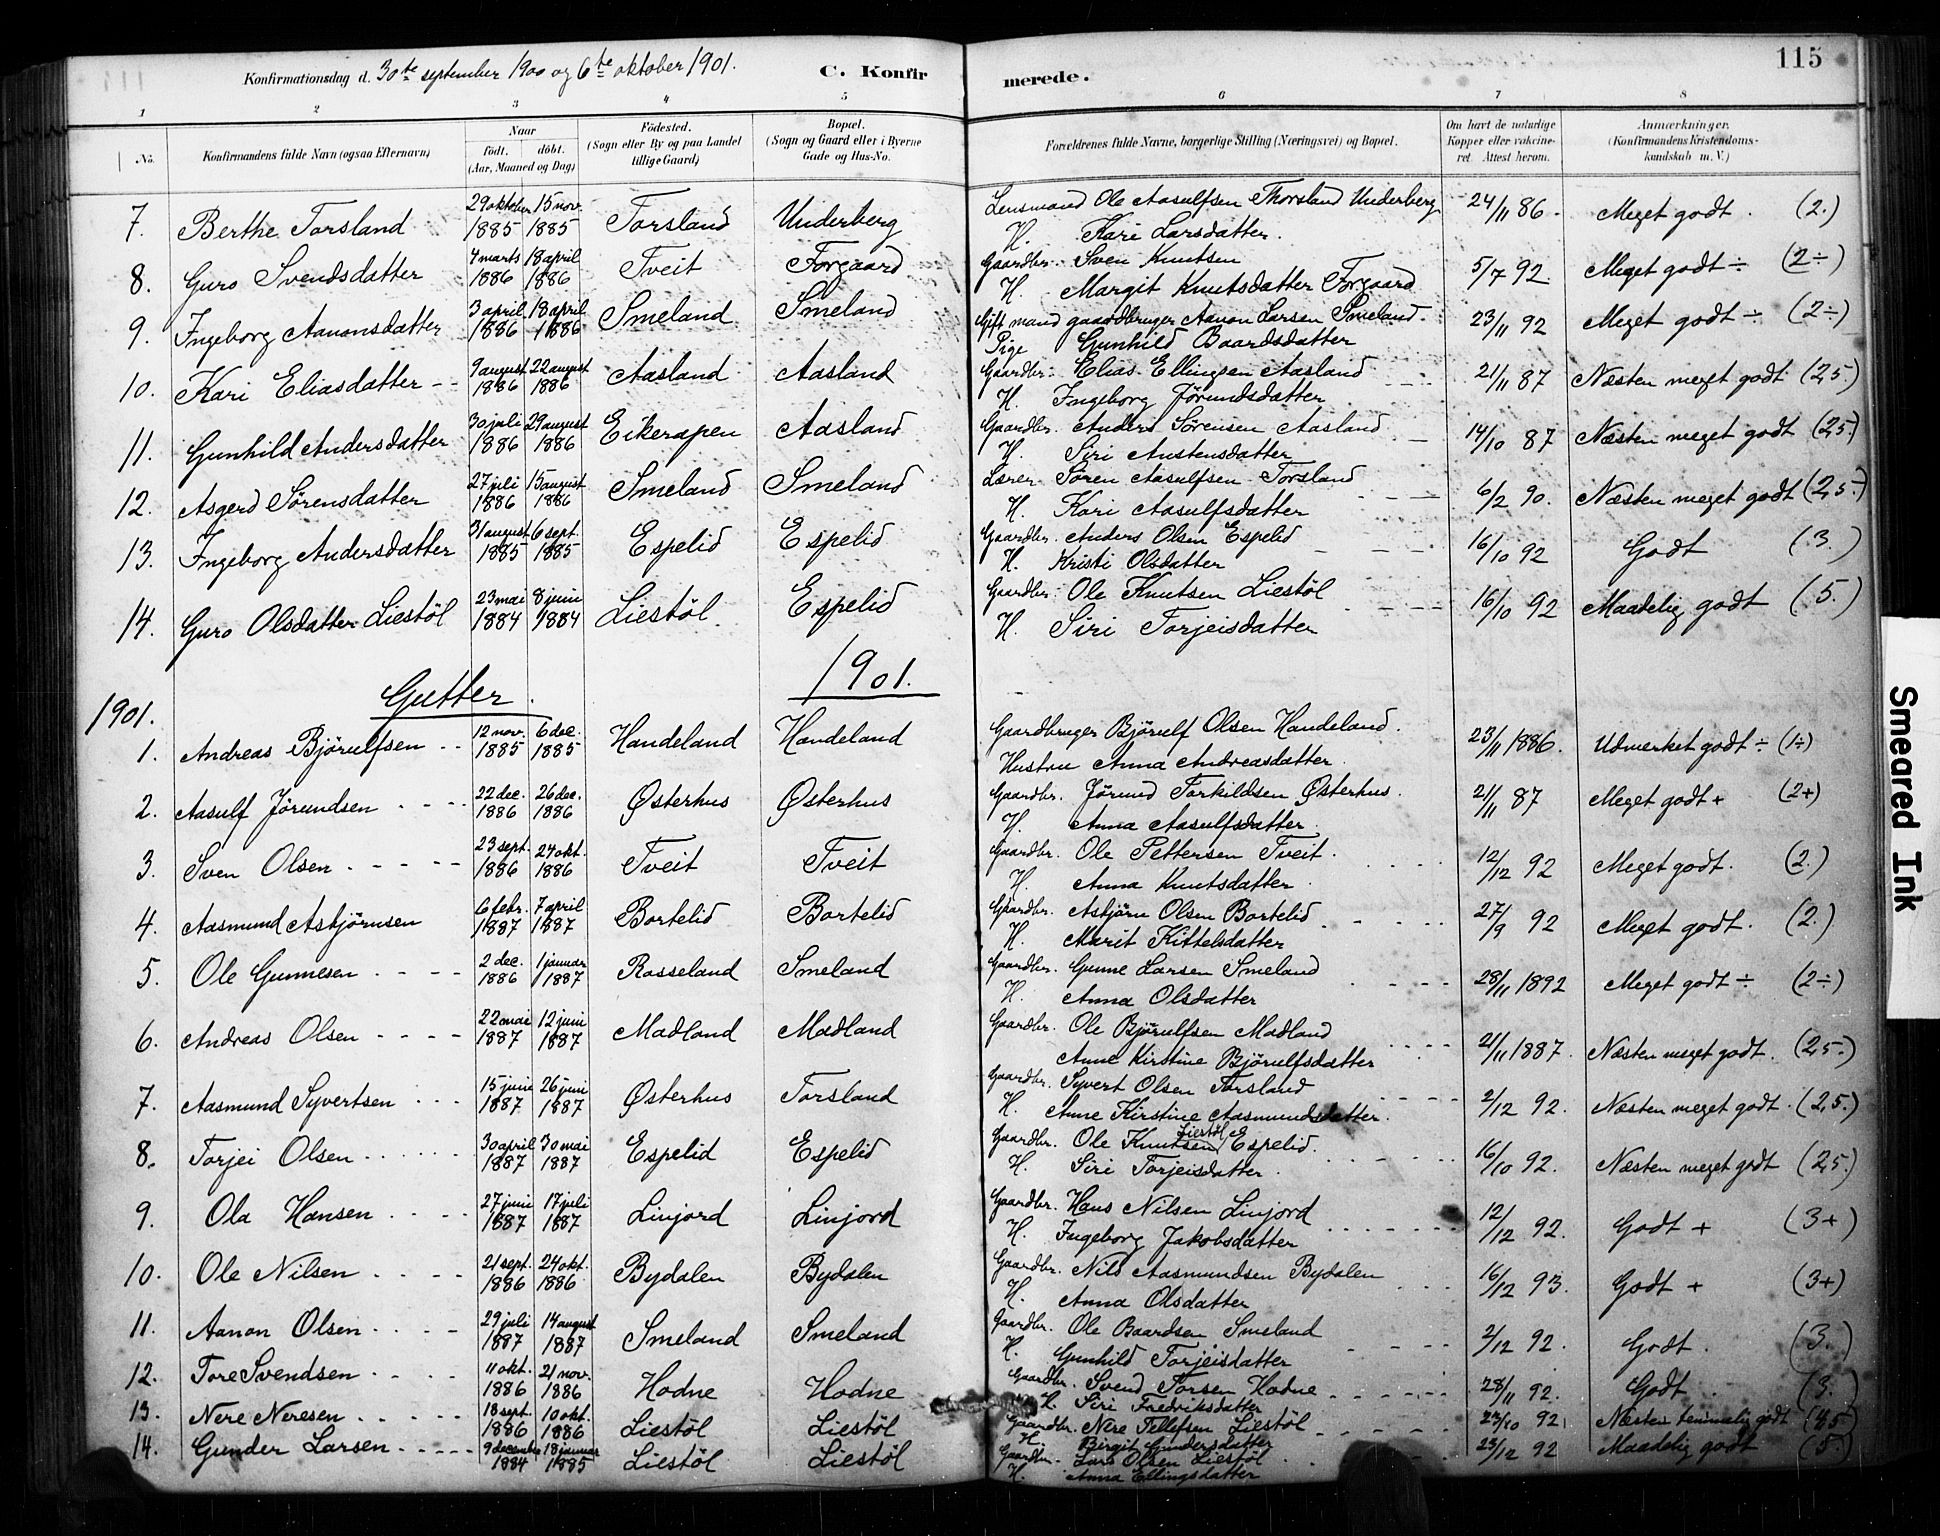 115
Konfirmationsdag d. 30te september 1900 og 6te oktober 1901. C. Konfirmerede.
1 2 3 4 5 6 7 8
No. Konfirmandens fulde Navn (ogsaa Efternavn) Naar født. døbt. (Aar, Maaned og Dag) Födested. (Sogn eller By og paa Landet tillige Gaard) Bopæl. (Sogn og Gaard eller i Byerne Gade og Hus-No. Forældrenes fulde Navne, borgerlige Stilling (Næringsvei) og Bopæl. Om havt de naturlige Kopper eller vaccineret. Attest herom. Anmærkninger. (Konfirmandens Kristendomskundskab m. V.)
7. Berthe Torsland 29 oktober 1885 15 nov. 1885 Torsland Underberg Lensmand Ole Aasulfsen Thorsland Underberg H. Kari Larsdatter. 24/11 86. Meget godt. (2.)
8. Guro Svendsdatter 4 marts 1886 18 april 1886 Tveit Forgaard Gaardbr. Sven Knutsen H. Margit Knutsdatter Forgaard 5/7 92 Meget godt ÷ (2÷)
9. Ingeborg Aanonsdatter 3 april 1886 18 april 1886 Smeland Smeland Gift mand gaardbruger Aanon Larsen Smeland. Pige Gunhild Baardsdatter 23/11 92 Meget godt ÷ (2÷)
10. Kari Eliasdatter 9 august 1886 22 august 1886 Aasland Aasland Gaardbr. Elias Ellingsen Aasland H. Ingeborg Jørundsdatter 21/11 87 Næsten meget godt (2,5.)
11. Gunhild Andersdatter 30 juli 1886 29 august 1886 Eikerapen Aasland Gaardbr. Anders Sørensen Aasland H. Siri Austensdatter 14/10 87 Næsten meget godt (2,5.)
12. Asgerd Sørensdatter 27 juli 1886 15 august 1886 Smeland Smeland Lærer Søren Aasulfsen Torsland H. Kari Aasulfsdatter 6/2 90. Næsten meget godt (2,5.)
13. Ingeborg Andersdatter 31 august 1885 6 sept. 1885 Espelid Espelid Gaardbr. Anders Olsen Espelid H. Kristi Olsdatter 16/10 92 Godt (3.)
14. Guro Olsdatter Liestöl 23 mai 1884 8 juni 1884 Liestöl. Espelid Gaardbr. Ole Knutsen Liestöl H. Siri Torjeisdatter 16/10 92 Maadelig godt (5.)
1901. Gutter. 1901.
1. Andreas Bjørulfsen 12 nov. 1885 6 dec. 1885 Handeland Handeland Gaardbruger Bjørulf Olsen Handeland. Hustru Anna Andreasdatter. 23/11 1886. Udmerket godt ÷ (1÷)
2. Aasulf Jørundsen 22 dec. 1886 26 dec. 1886 Østerhus Østerhus Gaardbr. Jørund Torkildsen Østerhus. H. Anna Aasulfsdatter. 21/11 87 Meget godt + (2+)
3. Sven Olsen 23 sept. 1886 24 okt. 1886 Tveit Tveit Gaardbr. Ole Pettersen Tveit. H. Anna Knutsdatter. 12/12 92 Meget godt. (2.)
4. Aasmund Asbjørnsen 6 febr. 1887 7 april 1887 Bortelid Bortelid Gaardbr. Asbjørn Olsen Bortelid H. Marit Kittelsdatter 27/9 92 Meget godt. (2.)
5. Ole Gunnesen 2 dec. 1886 1 januar 1887 Rosseland Smeland Gaardbr. Gunne Larsen Smeland H. Anna Olsdatter 28/11 1892 Meget godt ÷ (2÷)
6. Andreas Olsen 22 mai 1887 12 juni 1887 Madland Madland Gaardbr. Ole Bjørulfsen Madland Anne Kirstine Bjørulfsdatter 21/11 1887. Næsten meget godt. (2,5.)
7. Aasmund Syvertsen 15 juni 1887 26 juni 1887 Østerhus Torsland Gaardbr. Syvert Olsen Torsland H. Anne Kirstine Aasmundsdatter. 2/12 92. Næsten meget godt. (2,5.)
8. Torjei Olsen 30 april 1887 30 mai 1887 Espelid Espelid Gaardbr. Ole Knutsen Liestöl Espelid. H. Siri Torjeisdatter. 16/10 92. Næsten meget godt (2,5.)
9. Ola Hansen 27 juni 1887 17 juli 1887 Linjord Linjord Gaardbr. Hans Nilsen Linjord H. Ingeborg Jakobsdatter 12/12 92. Godt + (3+)
10. Ole Nilsen 21 sept. 1886 24 okt. 1886 Bydalen Bydalen Gaardbr. Nils Aasmundsen Bydalen H. Anna Olsdatter 16/12 93. Godt + (3+)
11. Aanon Olsen 29 juli 1887 14 august 1887 Smeland Smeland Gaardbr. Ole Baardsen Smeland H. Gunhild Torjeisdatter 2/12 92. Godt. (3.)
12. Tore Svendsen 11 okt. 1886 21 nov. 1886 Hodne Hodne Gaardbr. Svend Torsen Hodne H. Siri Fredriksdatter 28/11 92. Godt (3.)
13. Nere Neresen 18 sept. 1886 10 okt. 1886 Liestöl Liestöl Gaardbr. Nere Tellefsen Liestöl H. Birgit Gundersdatter 23/10 92. Næsten temmelig godt (4,5)
14. Gunder Larsen 9 december 1884 18 januar 1885 Liestöl Liestöl Gaardbr. Lars Olsen Liestöl H. Anna Ellingsdatter 23/12 92 Maadelig godt (5.)
Smeared Ink